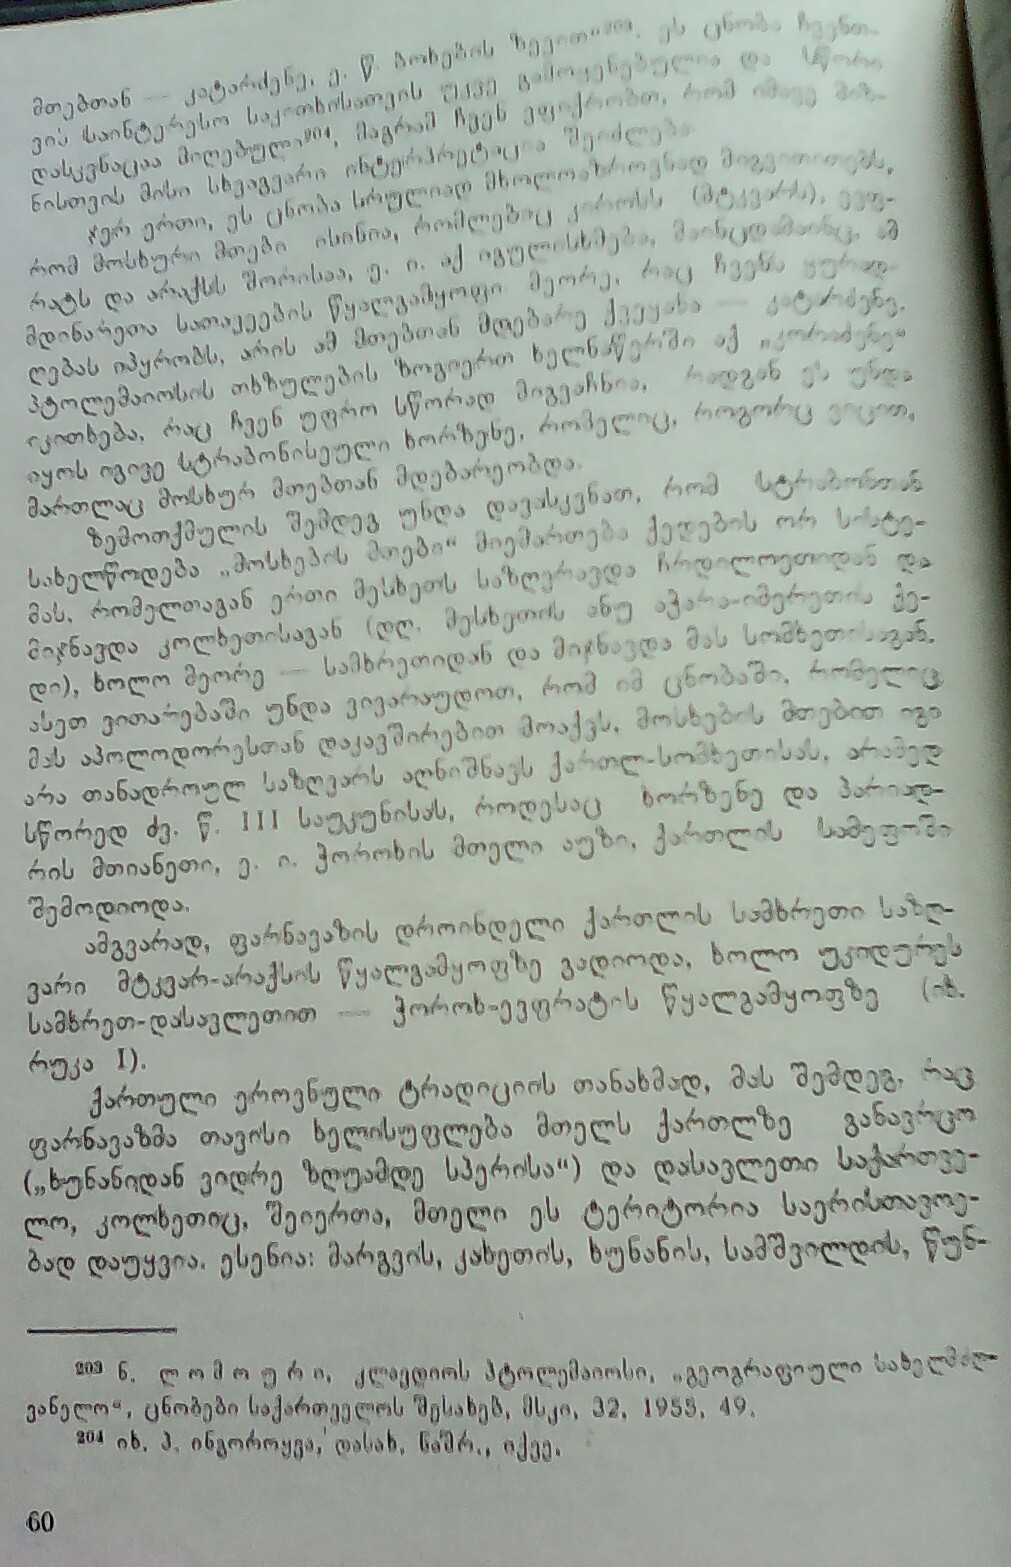 მთებთან — კატარძენე, ე. წ. ბოხების ზევით“²⁰³. ეს ცნობა ჩვენთ-
ვის საინტერესო საკითხისათვის უკვე გამოყენებულია და სწორი
დასკვნაცაა მიღებული²⁰⁴, მაგრამ ჩვენ ვფიქრობთ, რომ იმავე მიზ-
ნისთვის მისი სხვაგვარი ინტერპრეტაცია შეიძლება.
ჯერ ერთი, ეს ცნობა სრულიად მხოლოაზროვნად მიგვითითებს,
რომ მოსხური მთები ისინია, რომლებიც კიროსს (მტკვარს), ევფ-
რატს და არაქსს შორისაა, ე. ი. აქ იგულისხმება, მაინცდამაინც, ამ
მდინარეთა სათავეების წყალგამყოფი. მეორე, რაც ჩვენს ყურად-
ღებას იპყრობს, არის ამ მთებთან მდებარე ქვეყანა — კატარძენე.
პტოლემაიოსის თხზულების ზოგიერთ ხელნაწერში აქ „კორაძენე“
იკითხება, რაც ჩვენ უფრო სწორად მიგვაჩნია, რადგან ეს უნდა
იყოს იგივე სტრაბონისეული ხორზენე, რომელიც, როგორც ვიცით,
მართლაც მოსხურ მთებთან მდებარეობდა.
ზემოთქმულის შემდეგ უნდა დავასკვნათ, რომ სტრაბონთან
სახელწოდება „მოსხების მთები“ მიემართება ქედების ორ სისტე-
მას, რომელთაგან ერთი მესხეთს საზღვრავდა ჩრდილოეთიდან და
მიჯნავდა კოლხეთისაგან (დღ. მესხეთის ანუ აჭარა-იმერეთის ქე-
დი), ხოლო მეორე — სამხრეთიდან და მიჯნავდა მას სომხეთისაგან.
ასეთ ვითარებაში უნდა ვივარაუდოთ, რომ იმ ცნობაში, რომელიც
მას აპოლოდორესთან დაკავშირებით მოაქვს, მოსხების მთებით იგი
არა თანადროულ საზღვარს აღნიშნავს ქართლ-სომხეთისას, არამედ
სწორედ ძვ. წ. III საუკუნისას, როდესაც ხორზენე და პარიად-
რის მთიანეთი, ე. ი. ჭოროხის მთელი აუზი, ქართლის სამეფოში
შემოდიოდა.
ამგვარად, ფარნავაზის დროინდელი ქართლის სამხრეთი საზღ-
ვარი მტკვარ-არაქსის წყალგამყოფზე გადიოდა, ხოლო უკიდურეს
სამხრეთ-დასავლეთით — ჭოროხ-ევფრატის წყალგამყოფზე (იხ.
რუკა I).
ქართული ეროვნული ტრადიციის თანახმად, მას შემდეგ, რაც
ფარნავაზმა თავისი ხელისუფლება მთელს ქართლზე განავრცო
(„ხუნანიდან ვიდრე ზღუამდე სპერისა“) და დასავლეთი საქართვე-
ლო, კოლხეთიც, შეიერთა, მთელი ეს ტერიტორია საერისთავოე-
ბად დაუყვია. ესენია: მარგვის, კახეთის, ხუნანის, სამშვილდის, წუნ-
²⁰³ ნ. ლომოური, კლავდიოს პტოლემაიოსი, „გეოგრაფიული სახელმძღ-
ვანელო“, ცნობები საქართველოს შესახებ, მსკი, 32, 1955, 49.
²⁰⁴ იხ. პ. ინგოროყვა, დასახ. ნაშრ., იქვე.
60